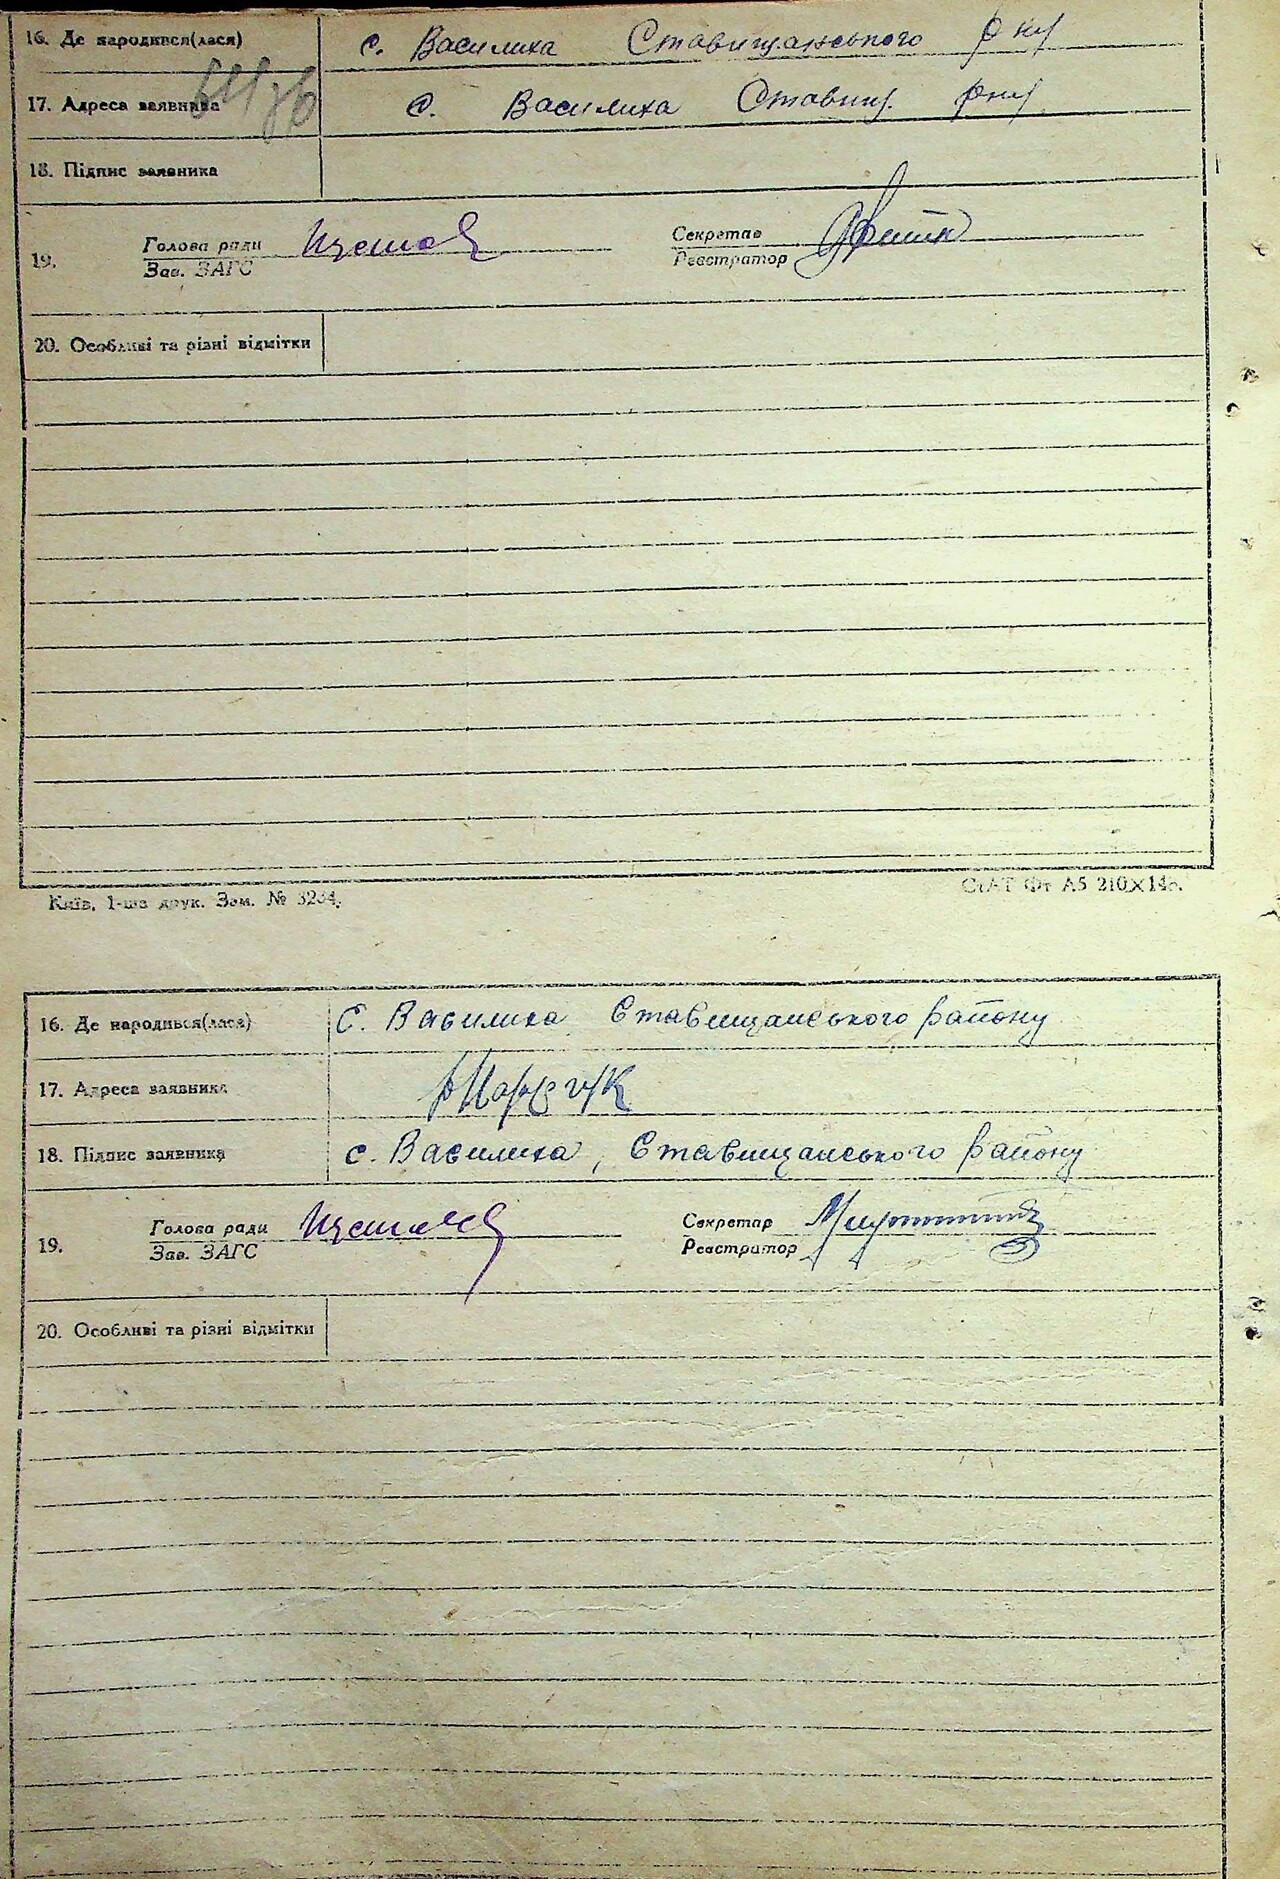 16. Де народився(лася) с. Василиха Ставищанського р-ну
17. Адреса заявника с. Василиха Ставищ. р-ну
18. Підпис заявника
19. Голова ради
Зав. ЗАГС
Секретар
Реєстратор
20. Особливі та різні відмітки
Київ, 1-ша друк. Зам. № 3204.
СтАТ Фт А5 210×148.
16. Де народився(лася) С. Василиха Ставищанського району
17. Адреса заявника
18. Підпис заявника с. Василиха, Ставищанського району
19. Голова ради
Зав. ЗАГС
Секретар
Реєстратор
20. Особливі та різні відмітки